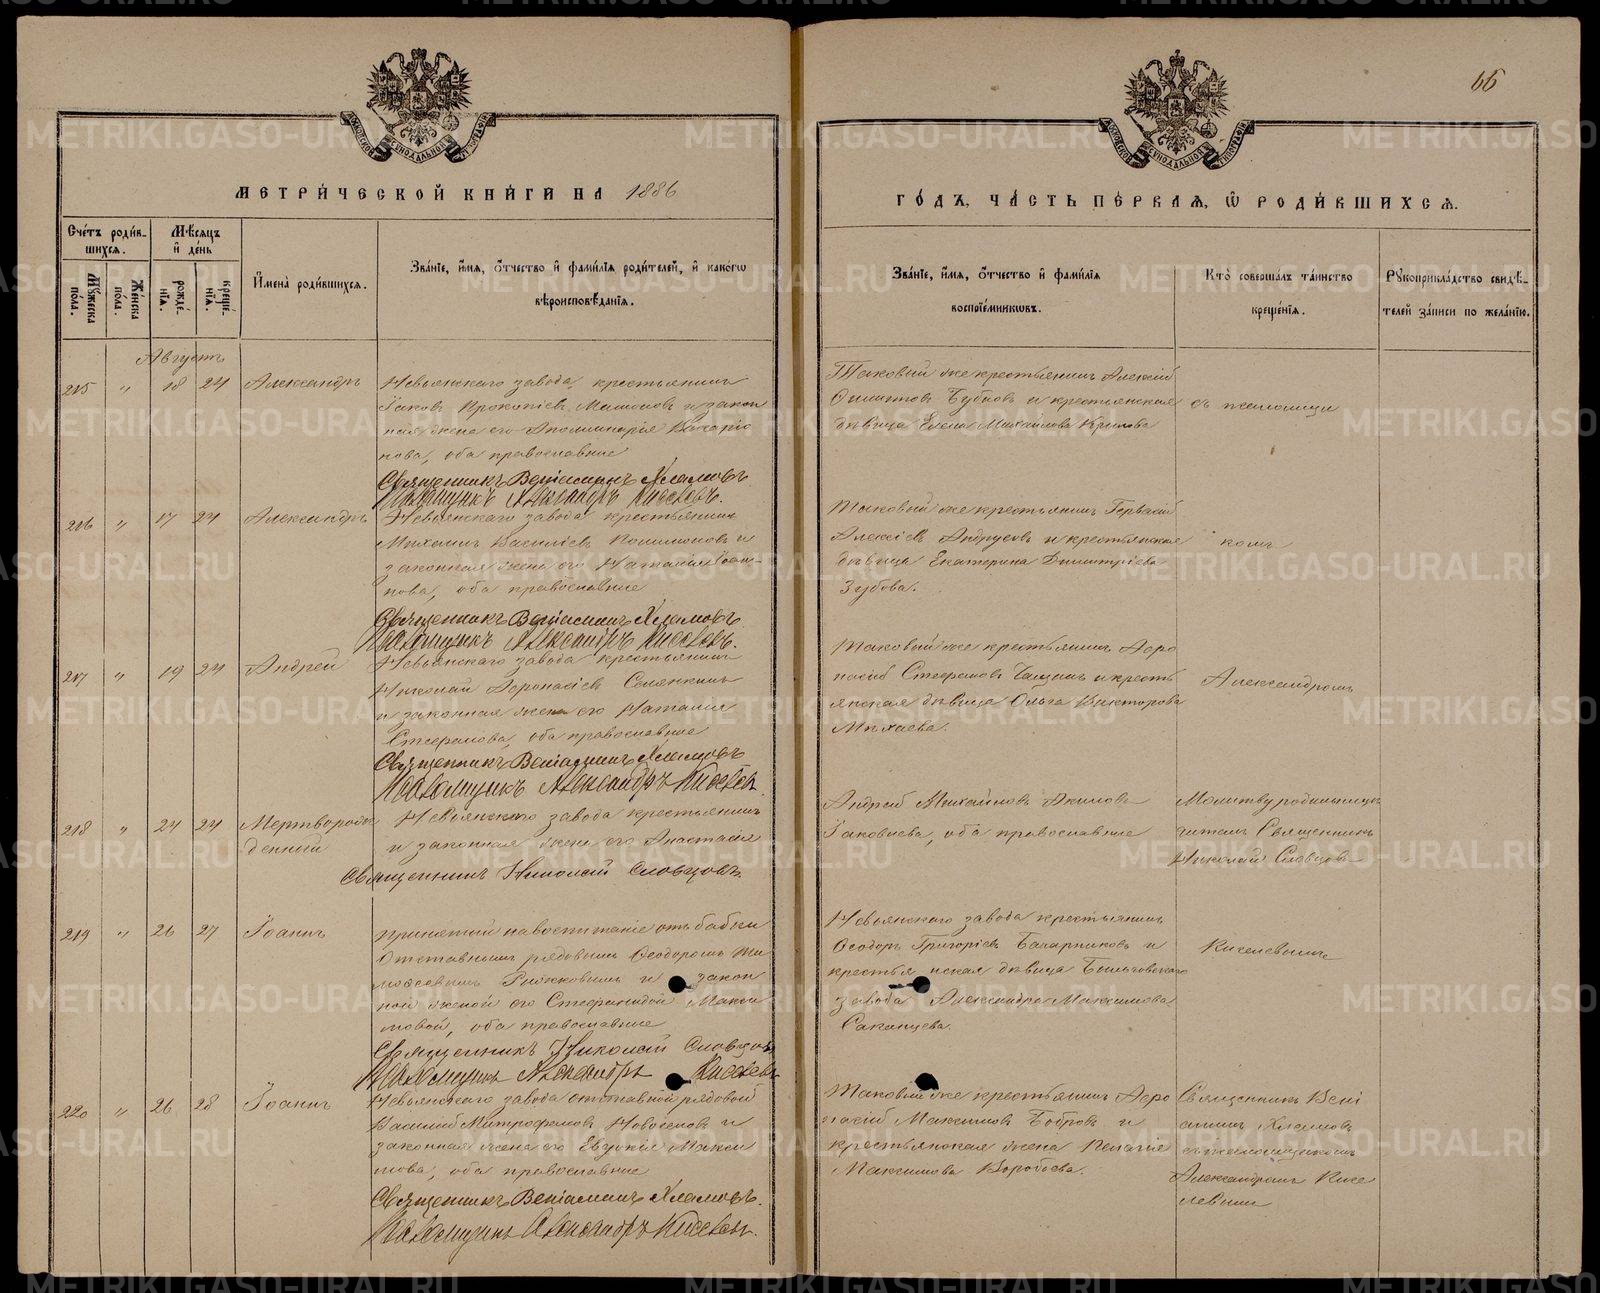 66
МЕТРИЧЕСКОЙ КНИГИ НА 1886
ГОДЪ, ЧАСТЬ ПЕРВАЯ, Ѡ РОДИВШИХСЯ.
Счетъ родив-
шихся.
Мужеска пола.
Женска пола.
Мѣсяцъ
и день
рожде-
нїя.
креще-
нїя.
Имена родившихся.
Званїе, имя, отчество и фамилїя родителей, и какогѡ
вѣроисповѣданїя.
Званїе, имя, отчество и фамилїя
воспрїемникѡвъ.
Кто совершалъ таинство
крещенїя.
Рукоприкладство свидѣ-
телей записи по желанїю.
Августъ
215 " 18 24 Александръ
Невьянскаго завода, крестьянинъ
Іаковъ Прокопіевъ и закон
ная жена его Аполлинарія
нова, оба православные
Священникъ Веніаминъ Хламовъ
Псаломщикъ Александръ Киселевъ.
Таковый же крестьянинъ Алексій
Филиповъ и крестьянская
дѣвица Елена Михайлова Крылова
съ псаломщи
216 " 17 24 Александръ
Невьянскаго завода крестьянинъ
Михаилъ Василіевъ и
законная жена его Наталія Іоан-
нова, оба православные
Священникъ Веніаминъ Хламовъ
Псаломщикъ Александръ Киселевъ.
Таковый же крестьянинъ
Алексіевъ и крестьянская
дѣвица Екатерина Димитріева
Зубова.
комъ
217 " 19 24 Андрей
Невьянскаго завода крестьянинъ
Николай Аѳонасіевъ
и законная жена его Наталія
Стефанова, оба православные
Священникъ Веніаминъ Хламовъ
Псаломщикъ Александръ Киселевъ.
Таковый же крестьянинъ Аѳо
насій Стефановъ и кресть
янская дѣвица Ольга Викторова
Михаева.
Александромъ
218 " 24 24 Мертворож
денный
Невьянскаго завода крестьянинъ
и законная жена его Анастасія
Священникъ Николай Словцовъ.
Андрей Михайловъ
Іаковлева, оба православные
Молитву родильницѣ
читалъ Священникъ
Николай Словцовъ
219 " 26 27 Іоаннъ
принятый на воспитаніе отъ бабки
отставнымъ рядовымъ Ѳеодоромъ
Рыжковымъ и закон
ной женой его Стефанидой
мовой, оба православные
Священникъ Николай Словцовъ
Псаломщикъ Александръ Киселевъ
Невьянскаго завода крестьянинъ
Ѳеодоръ Григоріевъ и
крестьянская дѣвица
завода Александра Максимова
Саканцева.
Киселевымъ
220 " 26 28 Іоаннъ
Невьянскаго завода отставной рядовой
Василій Митрофановъ Новоселовъ и
законная жена его Евдокія
мова, оба православные
Священникъ Веніаминъ Хламовъ.
Псаломщикъ Александръ Киселевъ.
Таковый же крестьянинъ Аѳо
насій Максимовъ Бобровъ и
крестьянская жена Пелагія
Максимова Воробьева.
Священникъ Вені
аминъ Хламовъ
съ псаломщикомъ
Александромъ Кисе
левымъ
METRIKI.GASO-URAL.RU